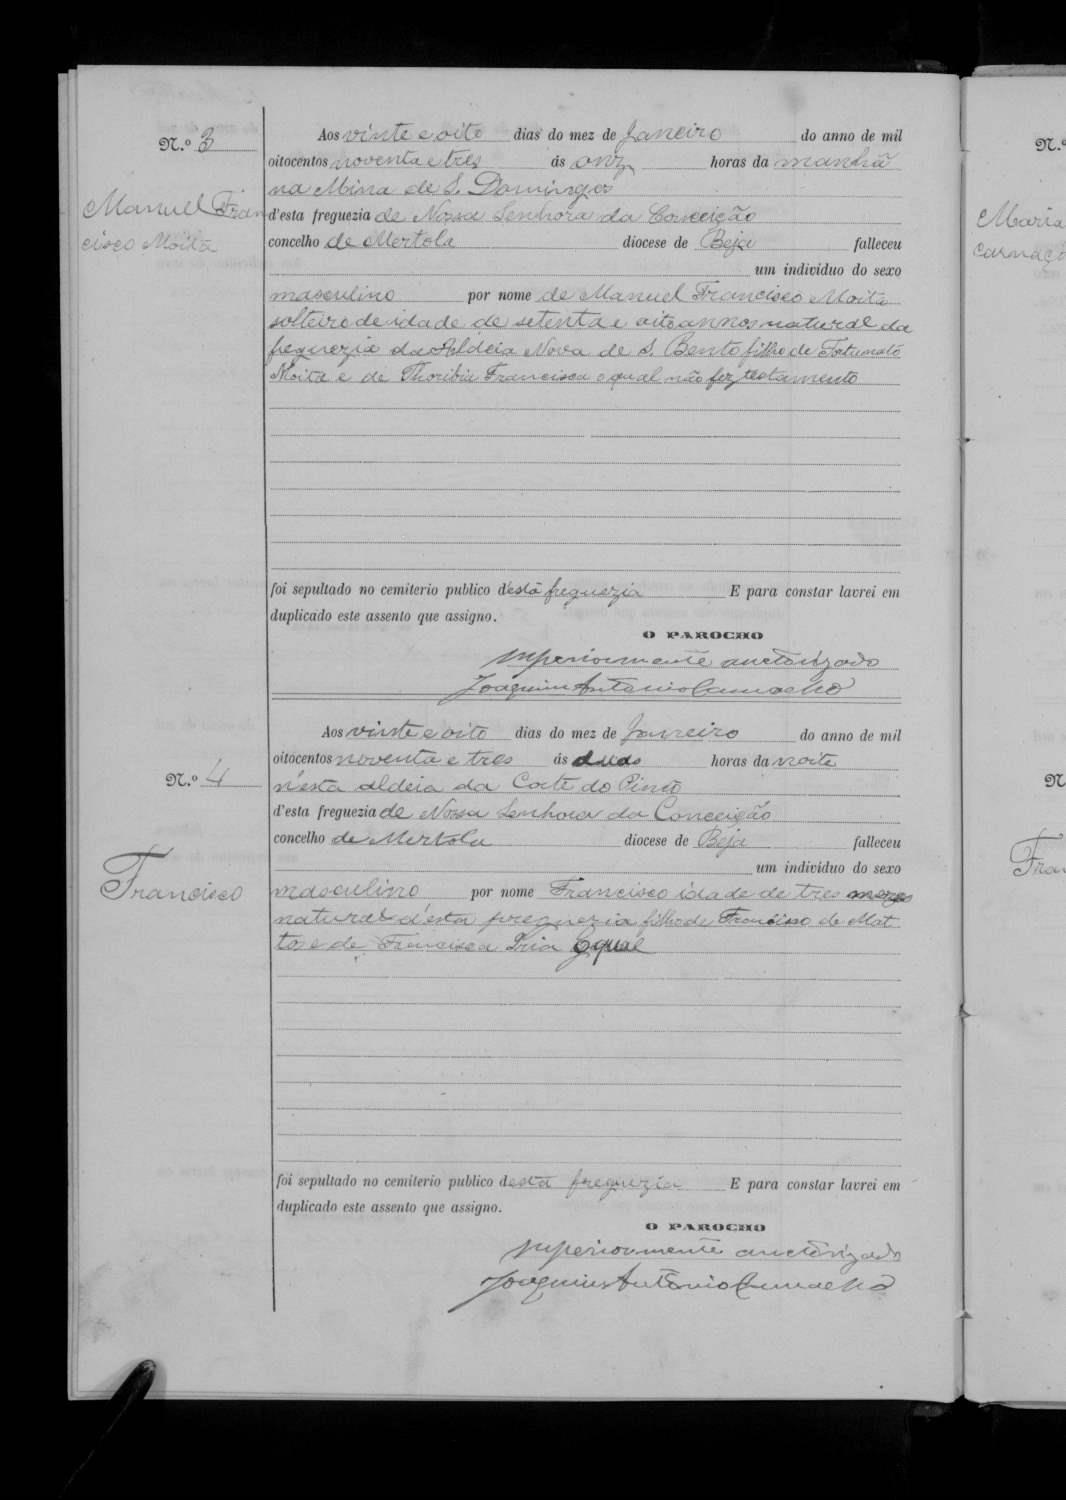 N.º 3
Manuel Fran
cisco Moita
Aos vinte e oito dias do mez de Janeiro do anno de mil
oitocentos noventa e tres ás onze horas da manhã
na Mina de S. Domingos
d'esta freguezia de Nossa Senhora da Conceição
concelho de Mertola diocese de Beja falleceu
um individuo do sexo
masculino por nome de Manuel Francisco Moita
solteiro de idade de setenta e oito annos natural da
freguezia da Aldeia Nova de S. Bento filho de Fortunato
Moita e de Thoribia Francisca o qual não fez testamento
foi sepultado no cemiterio publico d'esta freguezia E para constar lavrei em
duplicado este assento que assigno.
O PAROCHO
superiormente auctorizado
Joaquim Antonio Camacho
N.º 4
Francisco
Aos vinte e oito dias do mez de Janeiro do anno de mil
oitocentos noventa e tres ás duas horas da noite
n'esta Aldeia da Corte do Pinto
d'esta freguezia de Nossa Senhora da Conceição
concelho de Mertola diocese de Beja falleceu
um individuo do sexo
masculino por nome Francisco idade de tres mezes
natural d'esta freguezia filho de Francisco de Mat
tos e de Francisca O qual
foi sepultado no cemiterio publico desta freguezia E para constar lavrei em
duplicado este assento que assigno.
O PAROCHO
superiormente auctorizado
Joaquim Antonio Camacho
N.º
Maria
carnaçã
N
Fran